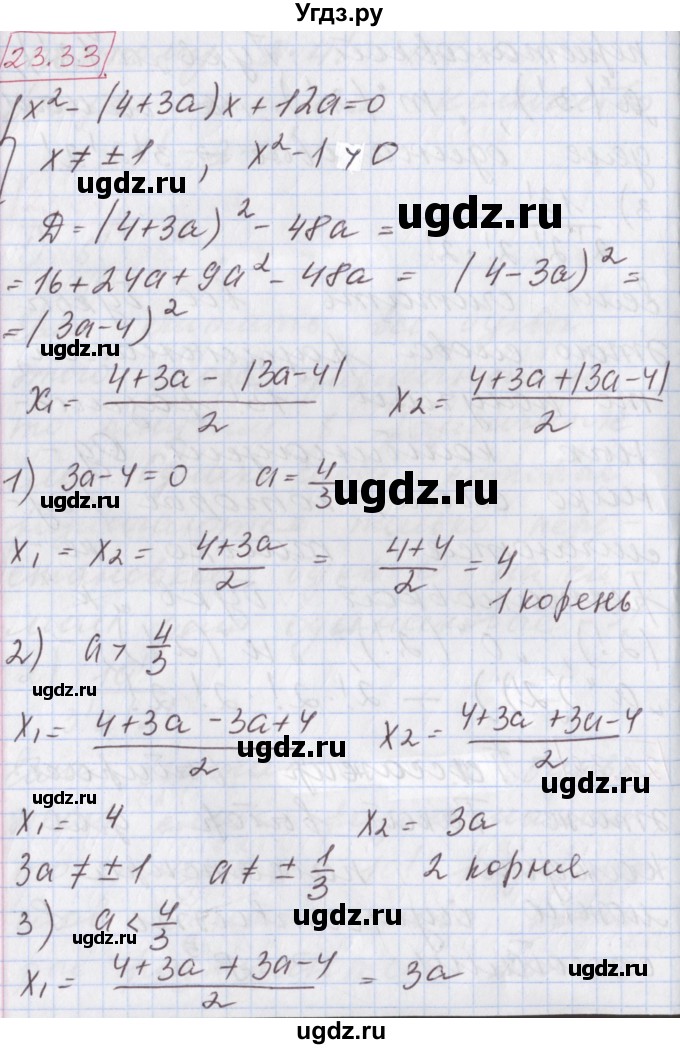 Угдз.ру
23.33
x² - (4+3a)x + 12a = 0
x ≠ ± 1 , x² - 1 > 0
ugdz.ru
ugdz.ru
Д = (4+3a)² - 48a =
= 16 + 24a + 9a² - 48a = (4-3a)² =
= (3a-4)²
ugdz.ru
x₁ = (4+3a - |3a-4|)/2 x₂ = (4+3a+|3a-4|)/2
1) 3a-4=0 a = 4/3
ugdz.ru
ugdz.ru
x₁ = x₂ = (4+3a)/2 = (4+4)/2 = 4
1 корень
2) a > 4/3
ugdz.ru
x₁ = (4+3a - 3a+4)/2 x₂ = (4+3a+3a-4)/2
ugdz.ru
ugdz.ru
ugdz.ru
x₁ = 4 x₂ = 3a
3a ≠ ± 1 a ≠ ± 1/3 2 корня
3) a < 4/3
ugdz.ru
x₁ = (4+3a + 3a-4)/2 = 3a
ugdz.ru
ugdz.ru